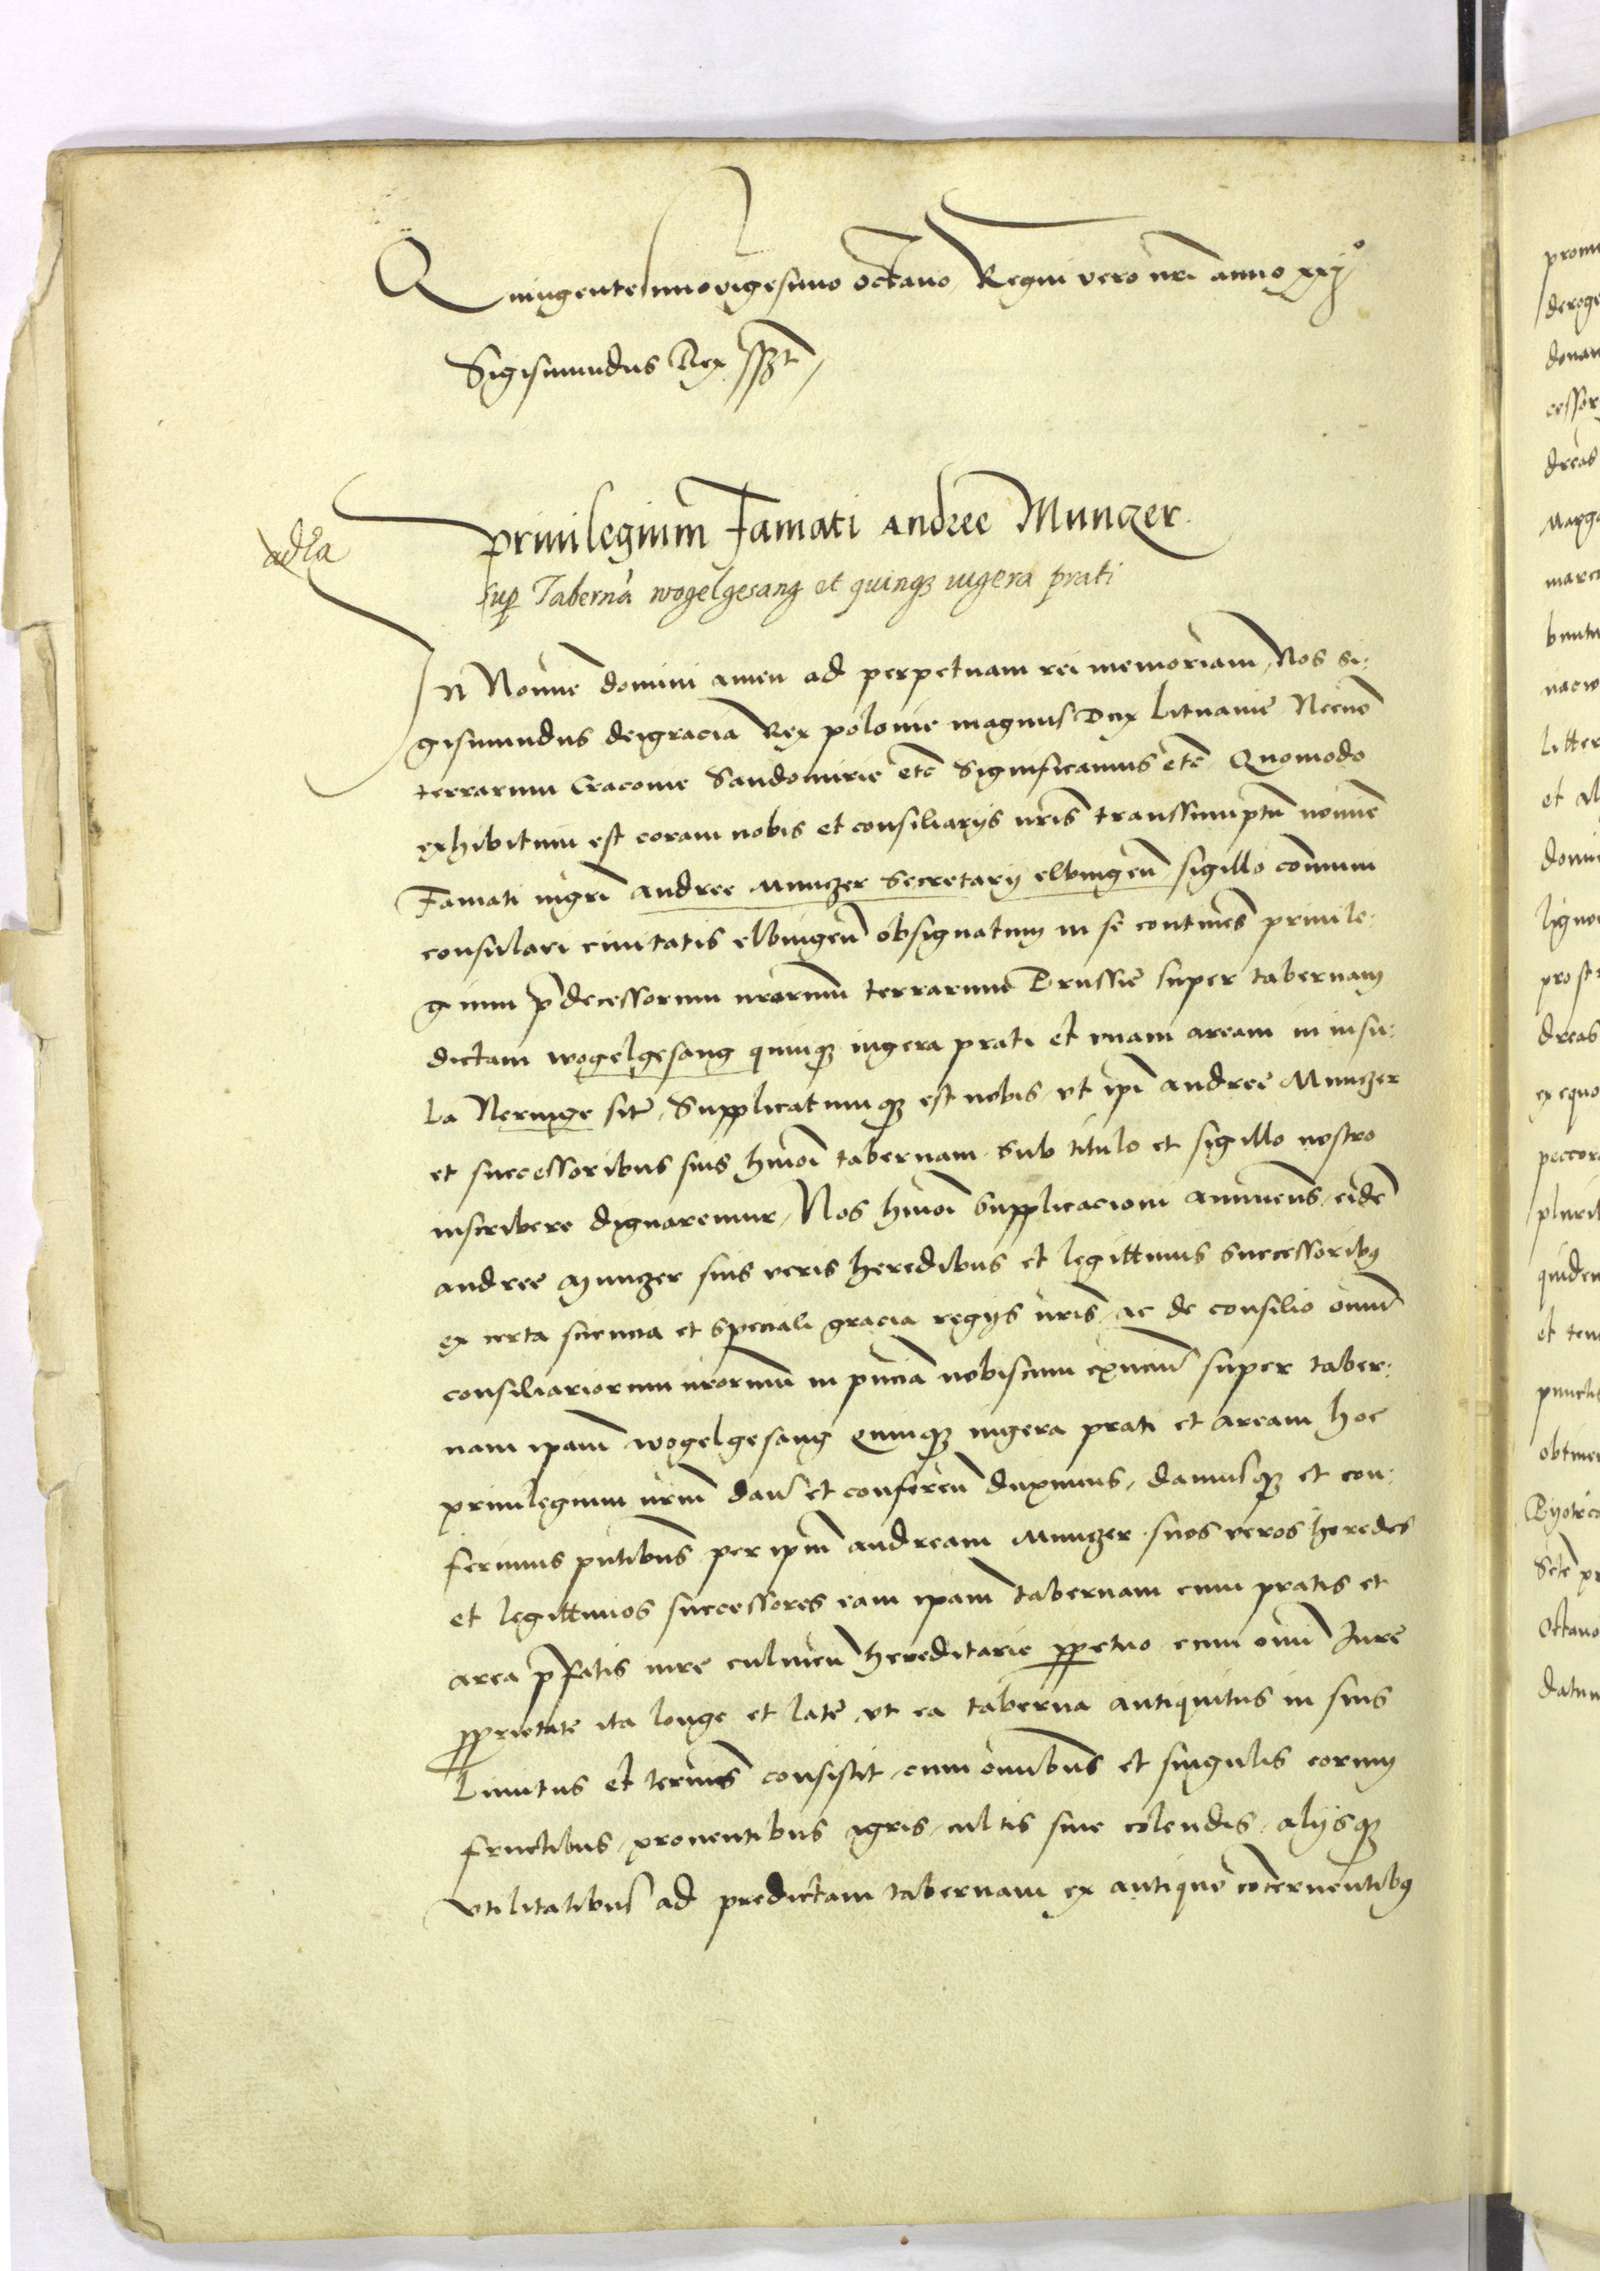 Quingentesimo vigesimo Octavo Regni vero nri anno xxij°
Sigismundus Rex sszt
adła
Privilegium Famati Andree Munczer
sup Taberna wogelgesang et quinqȝ iugera prati
In Nomine domini amen ad perpetuam rei memoriam, Nos Si:
gismundus dei gracia Rex polonie magnus Dux Lituanie Necnō
terrarum Cracovie Sandomirie etc Significamus etc Quomodo
exhibitum est coram nobis et consiliarijs nris transsumptū nomine
Famati mgri Andree Munczer Secretarij elbingen̄ sigillo com̄uni
consulari civitatis elbingen̄ obsignatum in se continēs privile:
gium p̄decessorum nrorum terrarum Prussie super tabernam
dictam wogelgesang quinqȝ iugera prati et unam aream in insu:
la Neringe sit, Supplicatumqȝ est nobis, ut ipi andree Munczer
et successoribus suis hmōi tabernam sub titulo et sigillo nostro
inscribere dignaremur, Nos hmōi supplicacioni annuens, eidē
andree Munczer suis veris heredibus et legittimis successoribꝰ
ex certa sciencia et speciali gracia regijs nris, ac de consilio om̄iū
consiliariorum nrorum in pn̄cia nobiscum exn̄ciū super taber:
nam ipam wogelgesang quinqȝ iugera prati et aream hoc
privilegium nrm dan̄ et conferen̄ duximus, damusqȝ et con:
ferimus pn̄tibus per ipm andream Munczer suos veros heredes
et legittimos successores eam ipam tabernam cum pratis et
area p̄fatis iure culmen̄ hereditarie ppetuo cum om̄i Iure
pprietate ita longe et late, ut ea taberna antiquitus in suis
Limitus et termis consistit, cum om̄ibus et singulis eorum
fructibus, proventibus agris, cultis sive colendis, alijsqȝ
vtilitatibus ad predictam tabernam ex antiquo cōcernentibꝰ